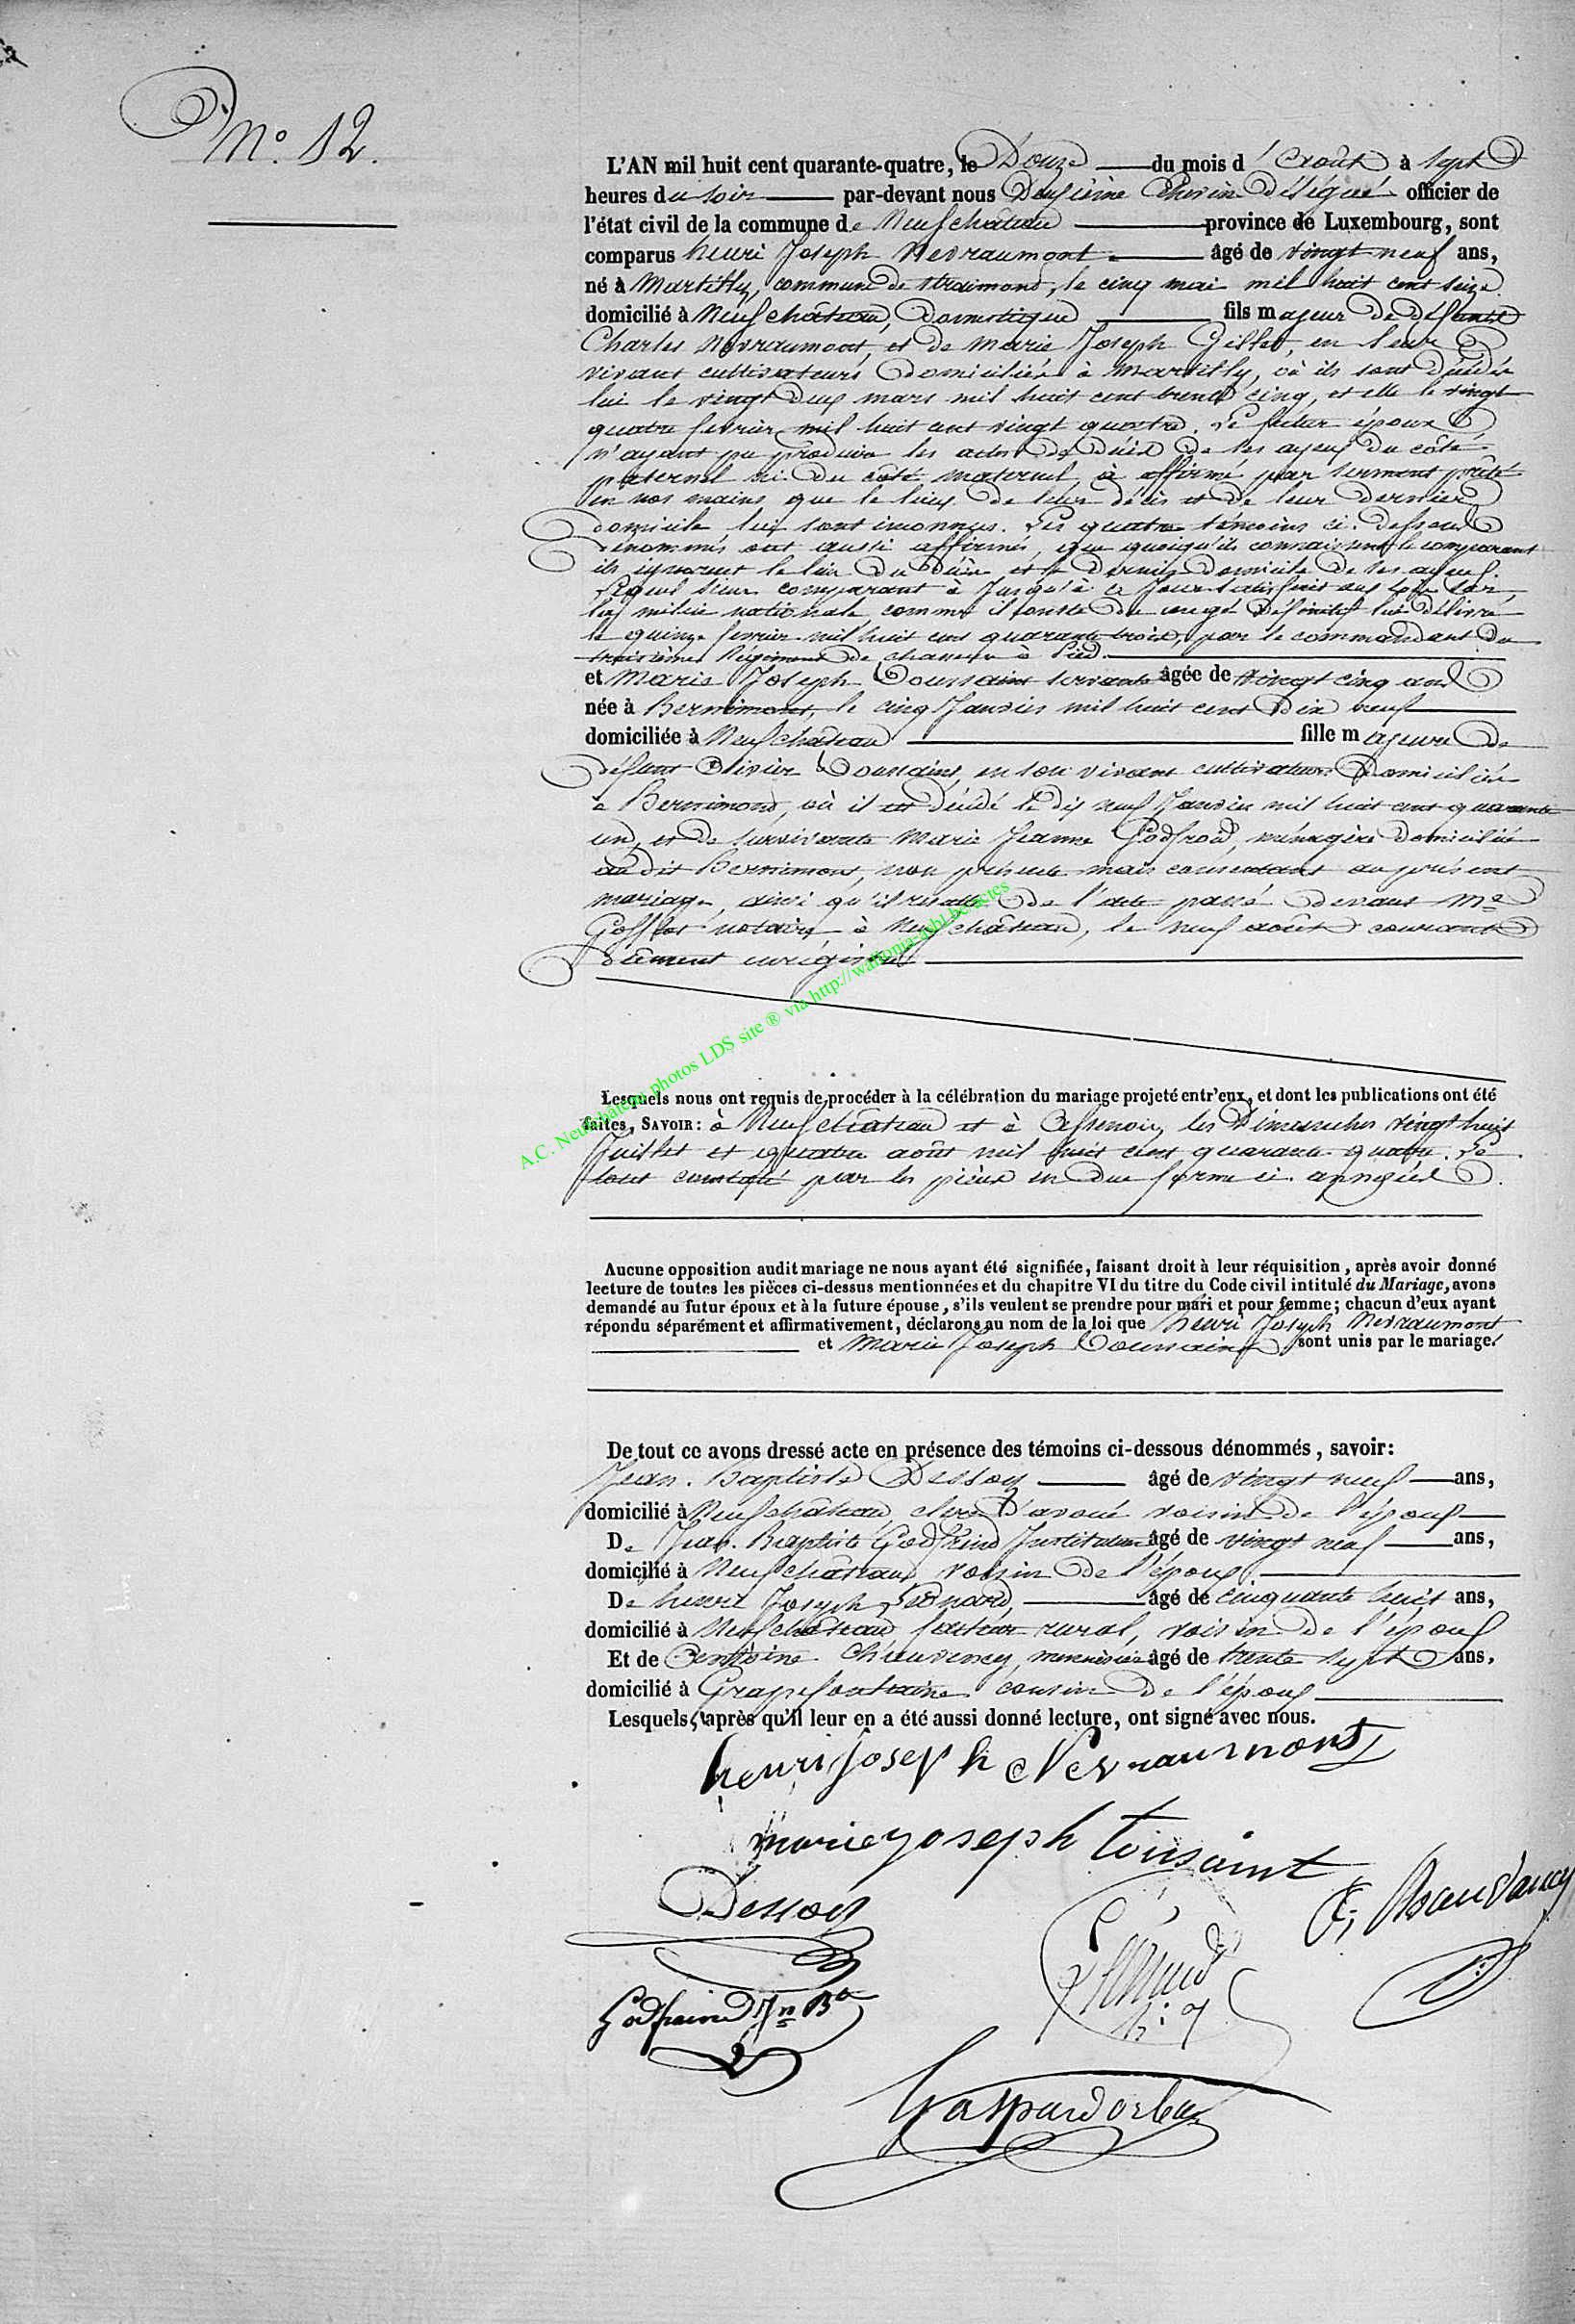 N.º 12.
L'AN mil huit cent quarante-quatre, le Douze du mois d'Août à sept
heures du soir par-devant nous Deuxième Echevin Délégué officier de
l'état civil de la commune de Neufchateau province de Luxembourg, sont
comparus henri Joseph Nevraumont âgé de vingt neuf ans,
né à Martilly, commune de Straimont, le cinq mai mil huit cent seize
domicilié à Neufchâteau, Domestique fils majeur de défunts
Charles Nevraumont, et de Marie Joseph Gillet, en leur
vivant cultivateurs Domiciliés à Martilly, où ils sont Décédés
lui le vingt Deux mars mil huit cent trente cinq, et elle le vingt
quatre fevrier mil huit cent vingt quatre. Le futur époux
n'ayant pu produire les actes de Décès de ses ayeux du côté
paternel ni du côté maternel, à affirmé par serment prêté
en nos mains que le lieu de leur décès et de leur dernier
domicile lui sont inconnus. Les quatre témoins ci-dessous
dénommés ont aussi affirmés, que quoiqu'ils connaissent le comparant
ils ignorent le lieu du Décès et le dernier Domicile de ses ayeux.
Lequel sieur comparant à Jusqu'à ce Jour satisfait aux lois sur
la milice nationale comme il conste du congé Définitif lui délivré
le quinze fevrier mil huit cent quarante trois, par le commandant du
troisième Régiment de chasseurs à Pied.
et Marie Joseph Toussaint servante âgée de vingt cinq ans
née à Bernimont, le cinq Janvier mil huit cent Dix neuf
domiciliée à Neufchateau fille majeure de
Défunt Olivier Toussaint, en son vivant cultivateur Domicilié
à Bernimont, où il est Décédé le dix neuf Janvier mil huit cent quarante
un, et de survivante Marie Jeanne Godfroid, ménagère Domiciliée
au dit Bernimont, non présente mais consentant au présent
mariage, ainsi qu'il résulte de l'acte passé devant Me
Gofflot notaire à Neufchâteau, le neuf août courant
Dûment enrégistré
A.C. Neufchâteau photos LDS site ® via http://wallonia-asbl.be/actes
Lesquels nous ont requis de procéder à la célébration du mariage projeté entr'eux, et dont les publications ont été
faites, SAVOIR: à Neufchâteau et à Assenois, les Dimanches vingt huit
Juillet et quatre août mil huit cent quarante quatre. Le
tout constaté par les pièces en due forme ci-annexées.
Aucune opposition audit mariage ne nous ayant été signifiée, faisant droit à leur réquisition, après avoir donné
lecture de toutes les pièces ci-dessus mentionnées et du chapitre VI du titre du Code civil intitulé du Mariage, avons
demandé au futur époux et à la future épouse, s'ils veulent se prendre pour mari et pour femme; chacun d'eux ayant
répondu séparément et affirmativement, déclarons au nom de la loi que henri Joseph Nevraumont
et Marie Joseph Toussaint sont unis par le mariage.
De tout ce avons dressé acte en présence des témoins ci-dessous dénommés, savoir:
Jean-Baptiste Dessoy âgé de vingt neuf ans,
domicilié à Neufchâteau, clerc d'avoué voisin de l'époux
De Jean-Baptiste Godfrind Instituteur âgé de vingt neuf ans,
domicilié à Neufchâteau voisin de l'époux
De henri Joseph Léonard, âgé de cinquante huit ans,
domicilié à Neufchateau facteur rural, voisin de l'époux
Et de Antoine Chauvency, menuisier âgé de trente sept ans,
domicilié à Grapfontaine cousin de l'époux
Lesquels, après qu'il leur en a été aussi donné lecture, ont signé avec nous.
henri joseph Nevraumont
marie yoseph tousaint
Dessoy
A; Chauvancy
Godfrind Jn Bte